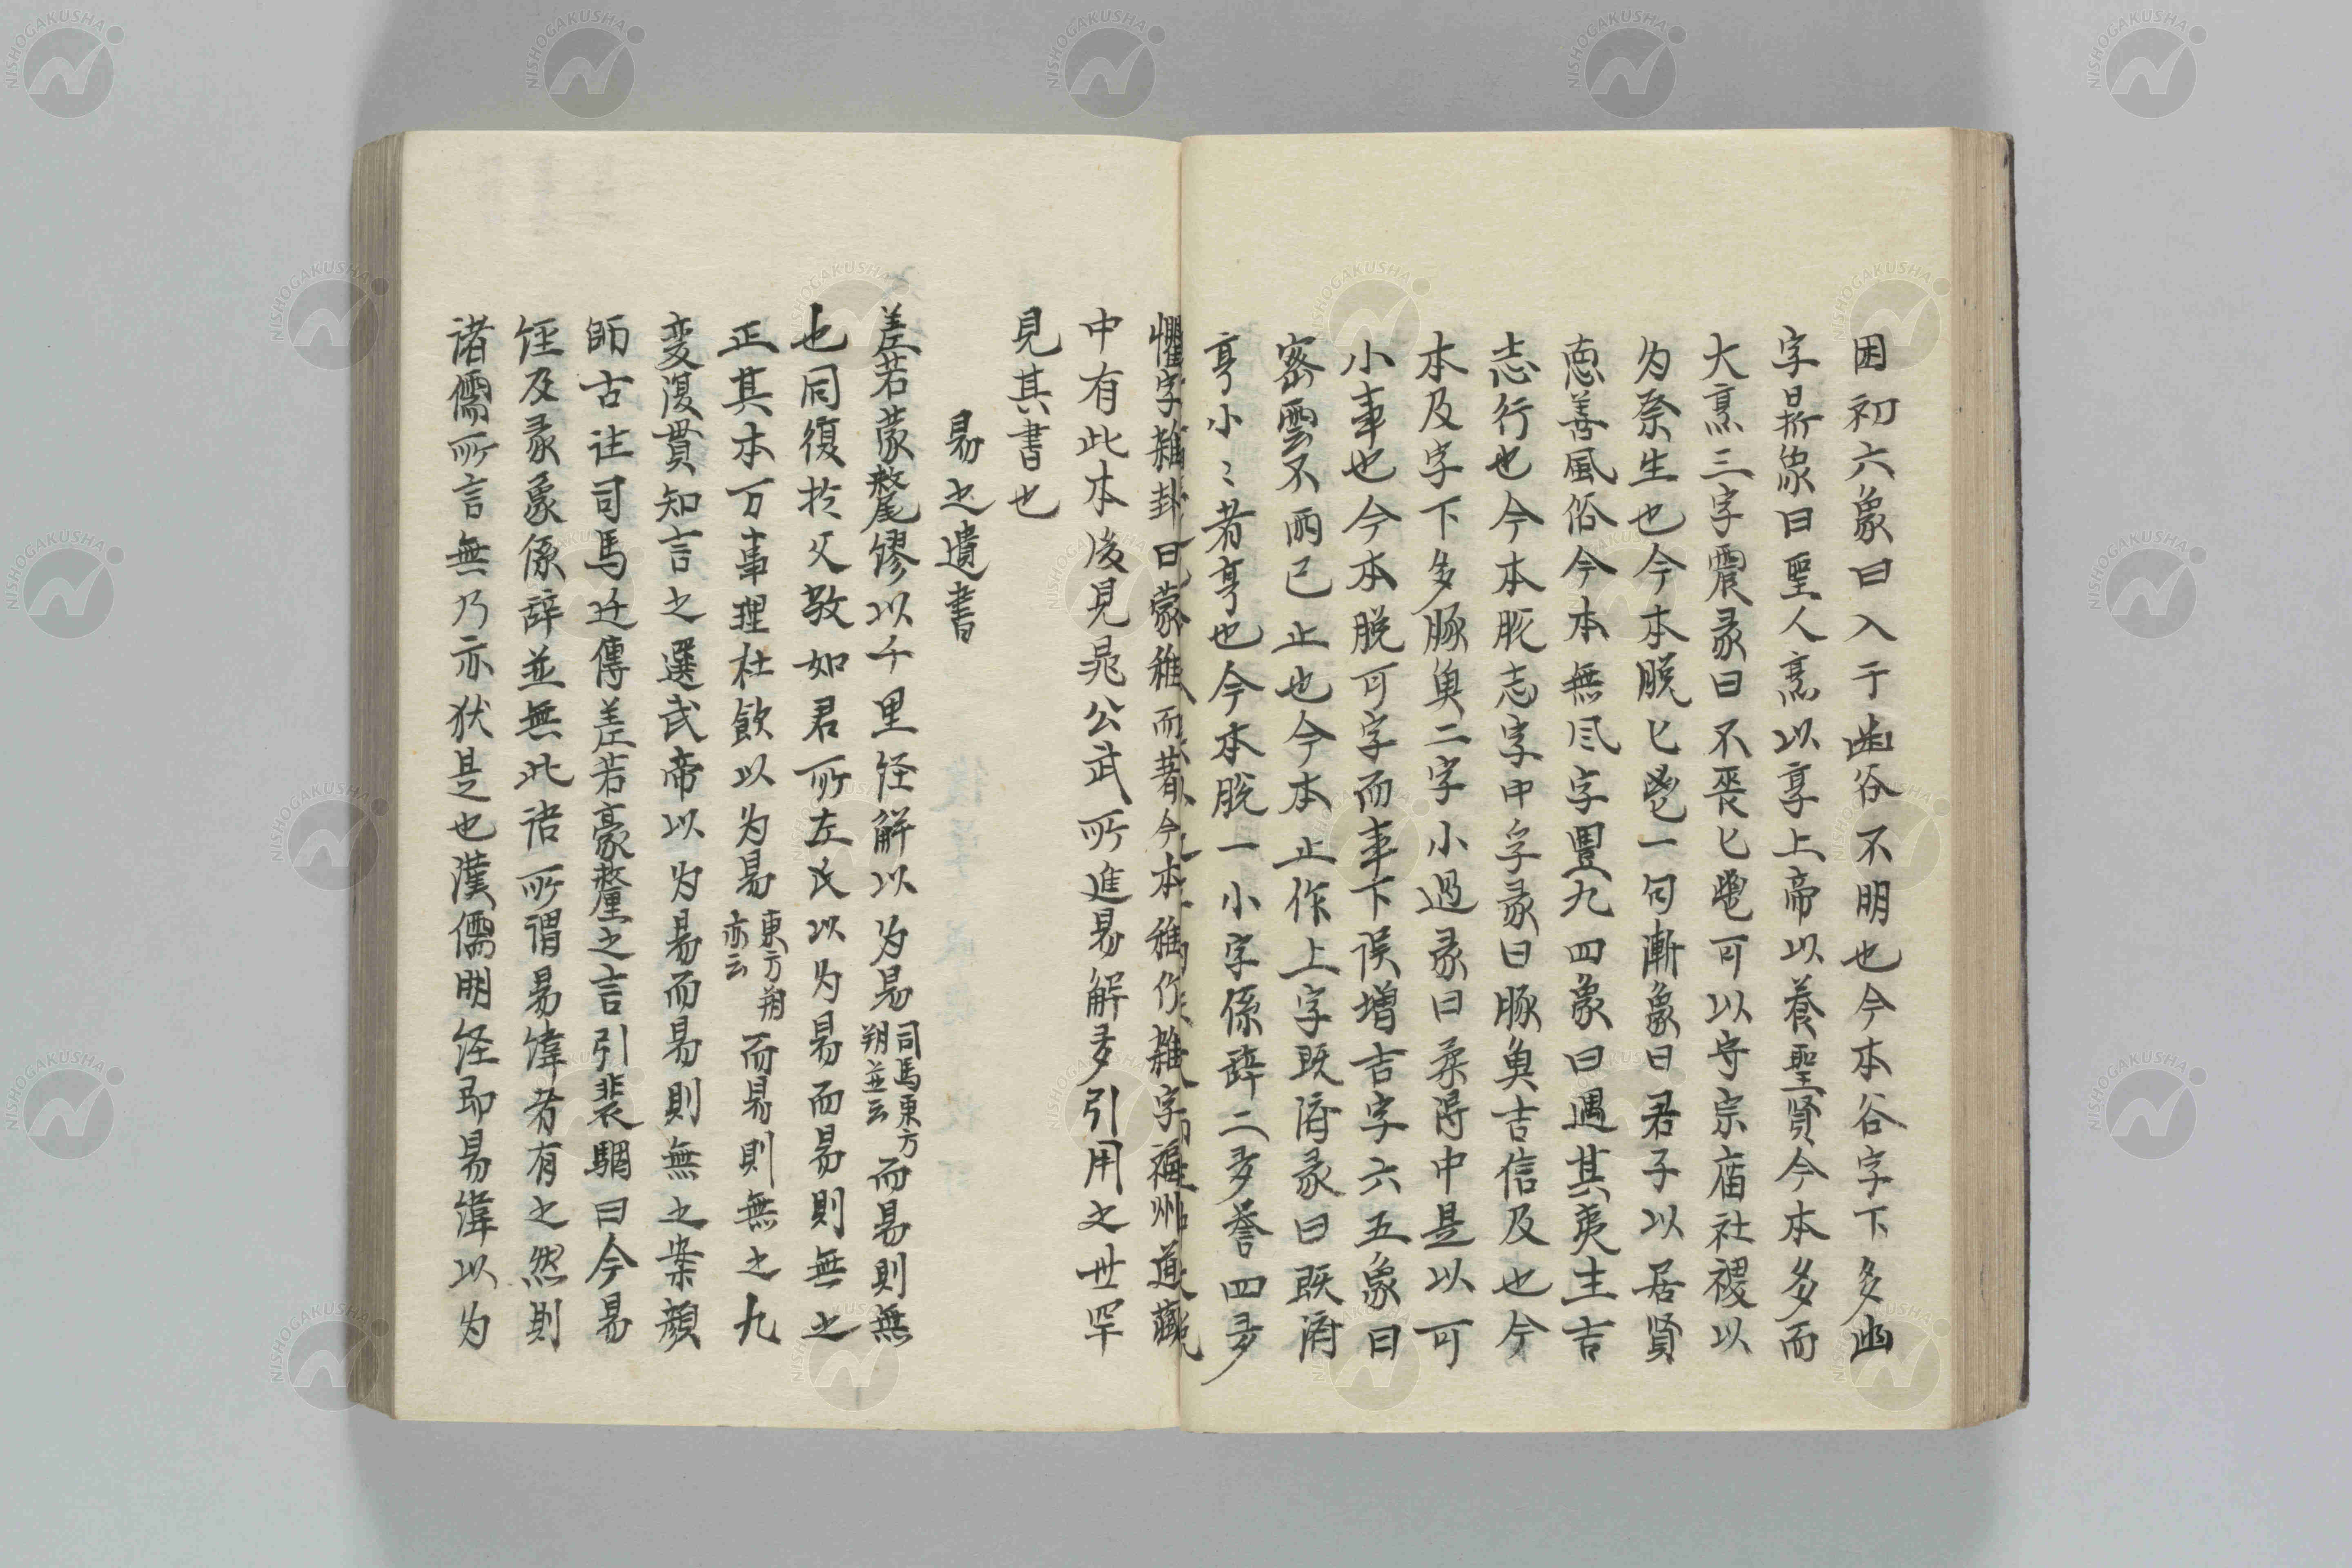 困初六象曰入于幽谷不明也今本谷字下多幽
字鼎彖曰聖人烹以享上帝以養聖賢今本多而
大烹三字震彖曰不喪匕鬯可以守宗庙社稷以
为祭主也今本脱匕鬯一句漸象曰君子以居賢
徳善風俗今本無风字豐九四象曰遇其夷主吉
志行也今本脱志字中孚彖曰豚魚吉信及也今
本及字下多豚魚二字小過彖曰柔得中是以可
小事也今本脱可字而事下误增吉字六五象曰
密雲不雨已止也今本止作上字既济彖曰既济
亨小〻者亨也今本脱一小字係辞二多誉四多
懼字雜卦曰蒙稚而著今本稚作雜字福州道藏
中有此本後見晁公武所進易解多引用之世罕
見其書也
易之遺書
差若豪氂缪以千里经解以为易司馬東方朔並云而易則無
也同復於父敬如君所左氏以为易而易則無之
正其本万事理杜欽以为易東方朔亦云而易則無之九
変復貫知言之選武帝以为易而易則無之案顔
師古注司馬迁傳差若豪氂之言引裴駰曰今易
经及彖象係辞並無此语所謂易緯者有之然則
诸儒所言無乃亦狀是也漢儒明经即易緯以为